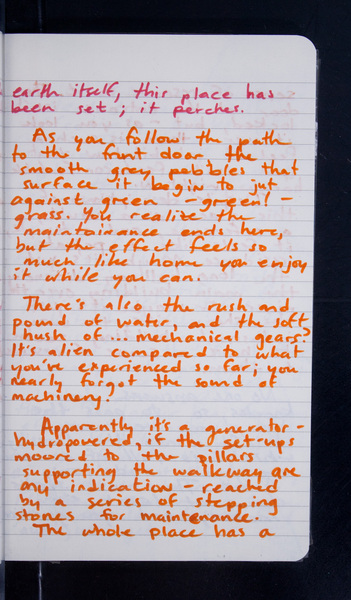 earth itself, this place has
been set; it perches.
As you follow the path
to the front door, the
smooth grey pebbles that
surface it begin to jut
against green - green! -
grass. You realize the
maintainance ends here,
but the effect feels so
much like home you enjoy
it while you can.
There's also the rush and
pound of water, and the soft
hush of... mechanical gears?
It's alien compared to what
you've experienced so far; you
nearly forgot the sound of
machinery.
Apparently it's a generator -
hydropowered, if the set-ups
moored to the pillars
supporting the walkway are
any indication - reached
by a series of stepping
stones for maintenance.
The whole place has a